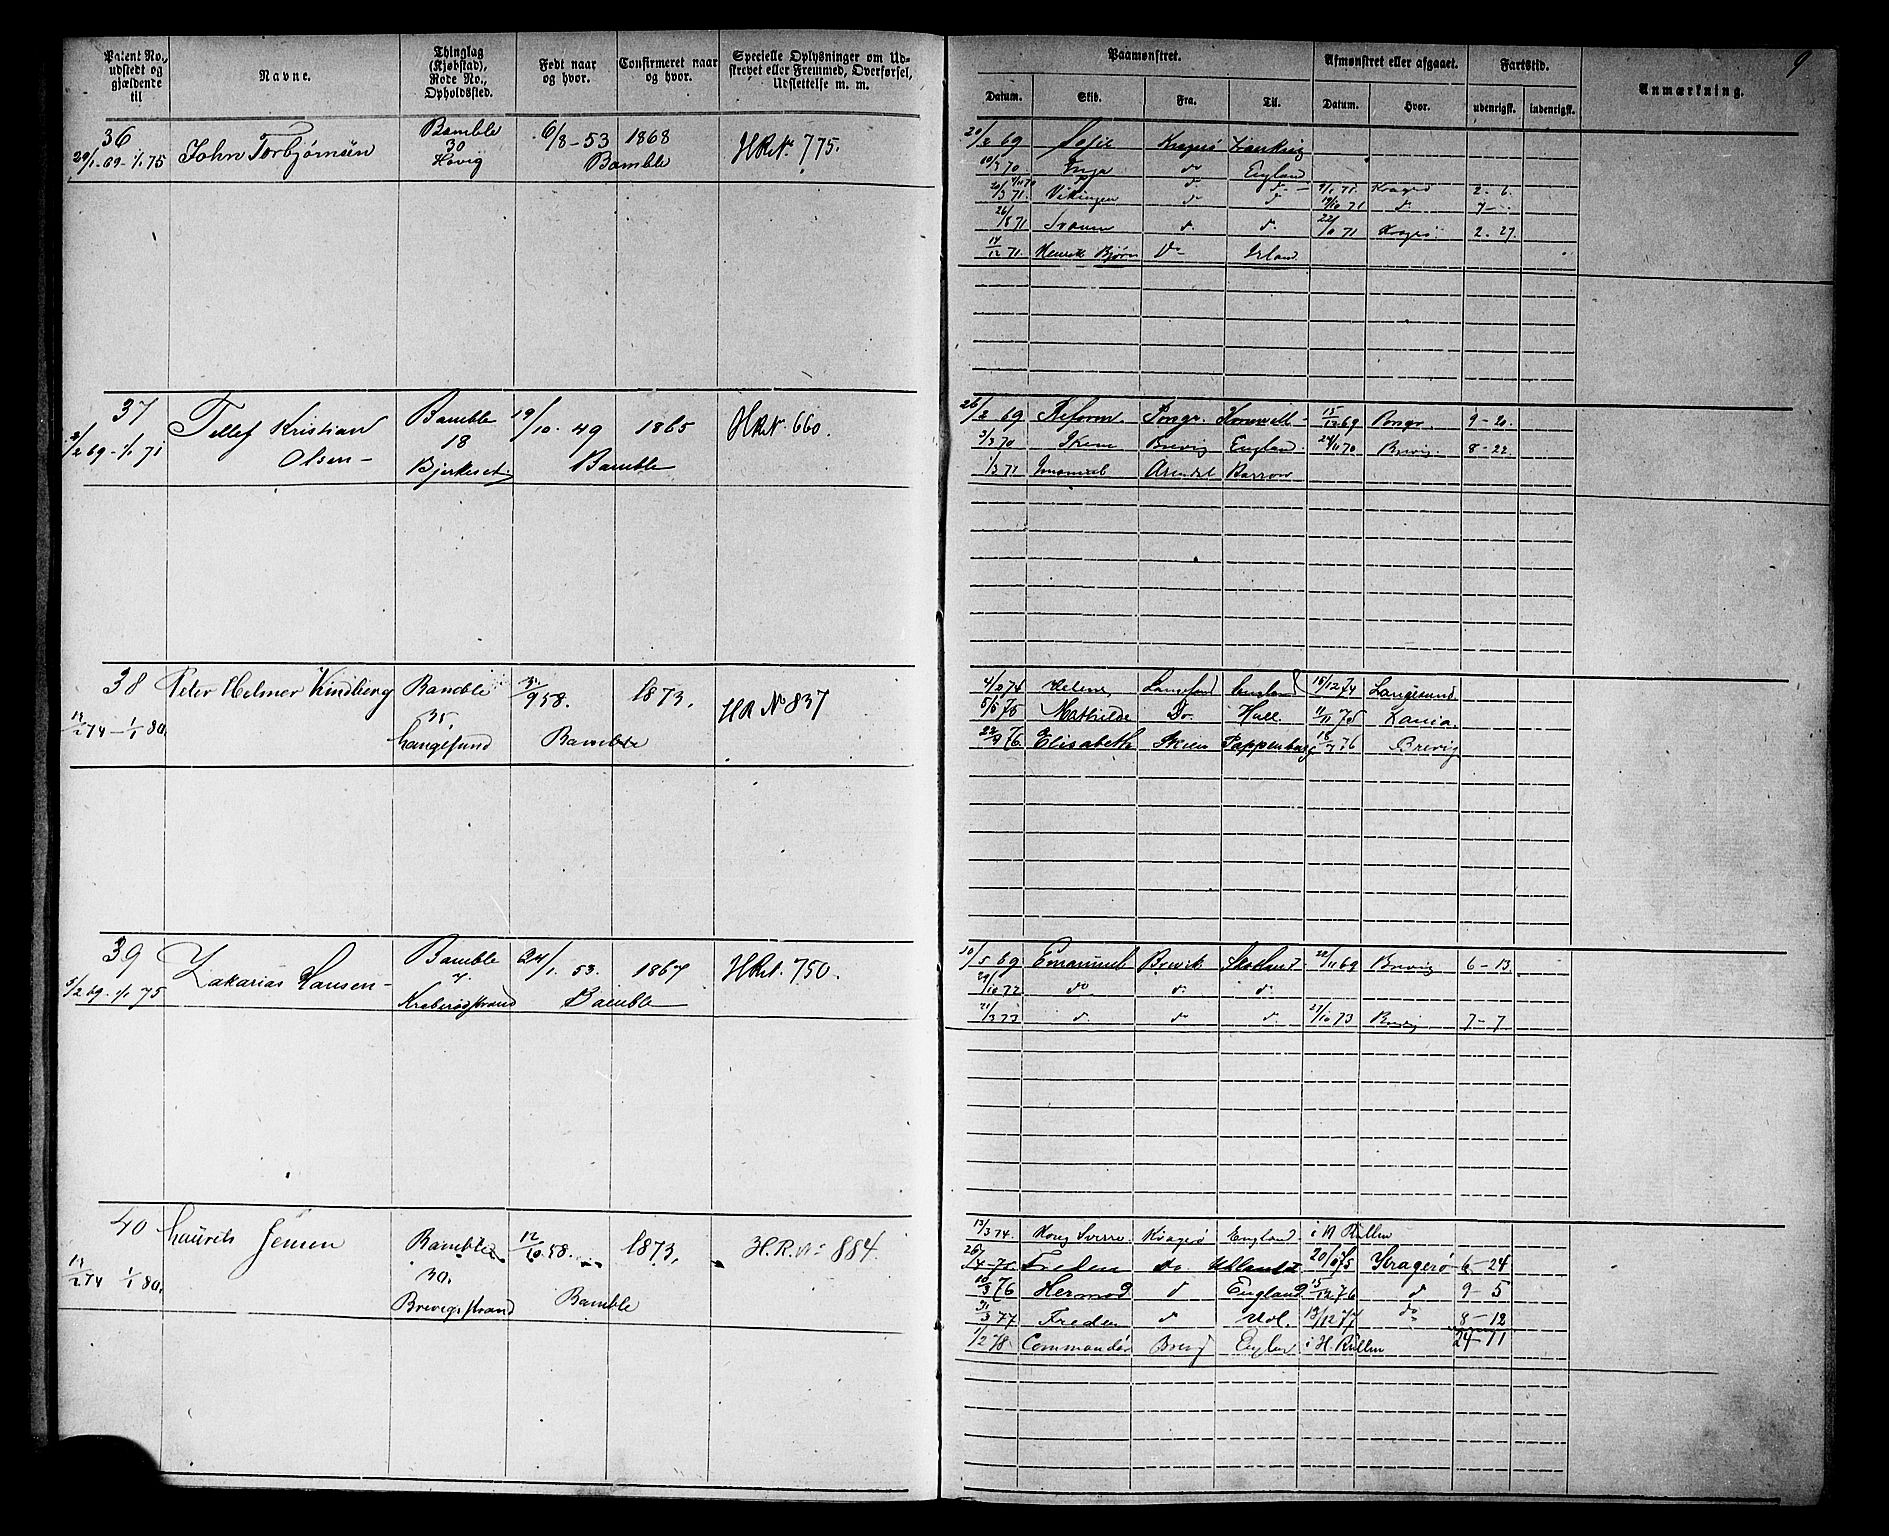 9
Patent No., udstedt og gjældende til
Navne.
Thinglag (Kjøbstad), Rode No., Opholdssted.
Født naar og hvor.
Confirmeret naar og hvor.
Specielle Oplysninger om Udskrevet eller Fremmed, Overførsel, Udslettelse m. m.
Paamønstret.
Afmønstret eller afgaaet.
Fartstid.
Anmærkning.
Datum.
Skib.
Fra.
Til.
Datum.
Hvor.
udenrigsk.
indenrigsk.
36
20/1-69-1/1 75
John Torbjørnsen
Bamble
30
Hovig
6/8-53
1868
Bamble
HR.N. 775.
20/2 69 Sofie Kragerø
10/3 70 Inga do England
20/3 71. Vikingen do do 19/10 71 do 7-
26/8 71 Svanen do. do. 22/10 71 Kragerø 2-27.
14/12 71. Henrik Bjørn Do Irland
37
2/2 69-1/1 71
Tellef Kristian
Olsen-
Bamble
18
Bjerkeset.
19/10. 49
1865
Bamble
HR.N. 660.
26/2 69 Reform. Porsgr. 15/12 69 Porsgr. 9-20.
3/3 70 Skien Brevig England 24/11 70 Brevig. 8-22.
1/3 71 Imanuel Arendal Barrow
38
12/2 74-1/1 80.
Peter Helmer Kindberg
Bamble
35.
Langesund
9 58.
1873.
Bamble
HR No 837
4/2 74 Helene Langesund England 15/12 74 Langesund
5/5 75 Mathilde Do. Hull. 11/11 75
22/4 76 Elisabeth Skien Pappenburg 76 Brevig
39
5/2 69-1/1 75
Zakarias Hansen-
Bamble
7.
Krabberødstrand
24/1. 53.
1867
Bamble
HR.N. 750.
10/5 69 Emanuel Brevik Skotland 22/11 69 Brevig 6-13
29/10 72 do do. do.
21/3 73 do. do do. 27/10 73 Brevig 7-7
40
12/2 74 1/1 80.
Laurits Jensen
Bamble
30.
Brevigstrand
12/10 58.
1873.
Bamble
H.R. No 884.
13/3 74. Kong Sverre Kragerø England i H Rullen
26/4-75 Freden do Udlandet 20/10 75 Kragerø 6-24
10/3 76 Hermod do England. 15/12 76 do 9-5
31/3 77 Freden do Udl. 19/12 77 do 8-12
24-11
1/2 78 Commandør Brevig England i H. Rullen